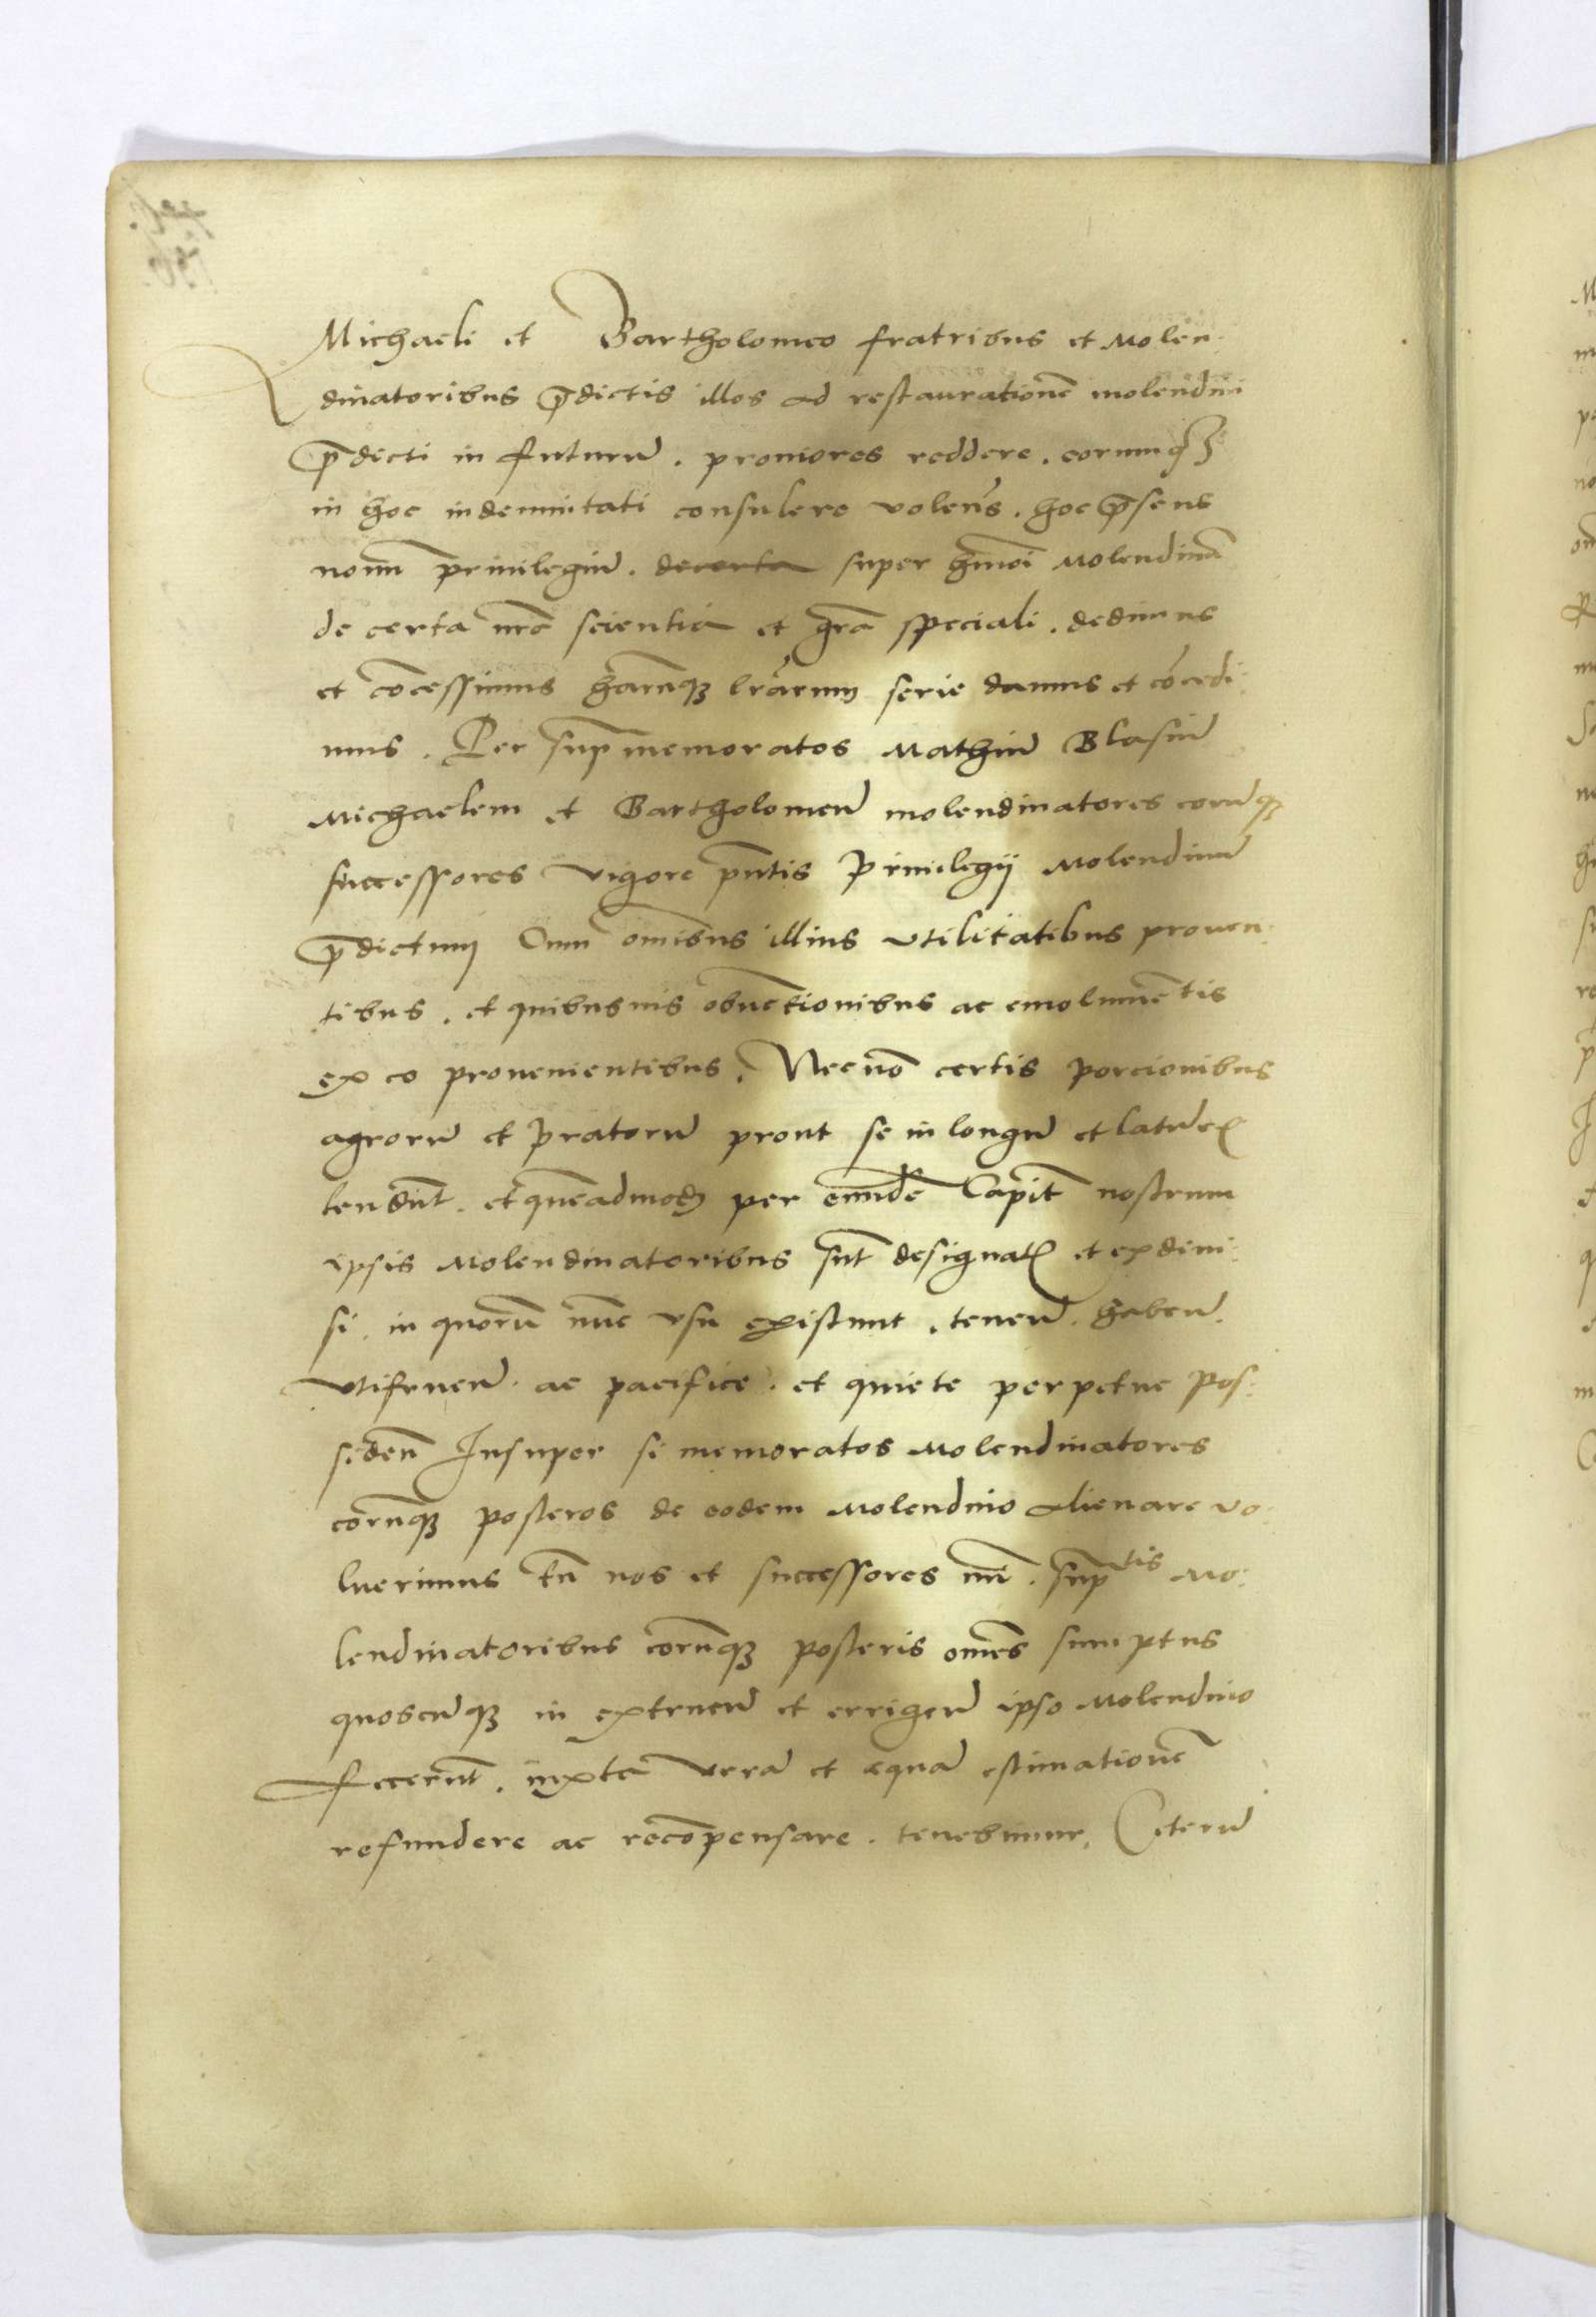 Michaeli et Bartholomeo fratribus et Molen:
dinatoribus p̄dictis illos ad restaurationē molendini
p̄dicti in futurū. proniores reddere. eorumqȝ
in hoc indemnitati consulere volen̄s. hoc p̄sens
nouū priuilegiū. de certa super hm̄oi Molendinū
de certa nr̄e scientia et gr̄a speciali. dedimus
et cōcessimus harūqȝ lr̄arum serie damus et cōcedi:
mus. Per sup̄memoratos Mathiū Blasiū
Michaelem et Bartholomeū molendinatores eorūqȝ
successores vigore pn̄tis Priuilegij Molendinū
p̄dictum Cum om̄ibus illius vtilitatibus prouen:
tibus. et quibusuis obuectionibus ac emolumētis
ex eo prouenientibus. Necnō certis porcionibus
agrorū et Pratorū prout se in longū et latū ex
tendūt. et quēadmodū per eundē Capit̄ nostrum
ipsis Molendinatoribus sūt designatꝭ et exdiui:
si. in quorū nūc vsu existunt. tenen̄. haben̄.
vtifruen̄. ac pacifice. et quiete perpetue Pos:
siden̄ Insuper si memoratos Molendinatores
eorūqȝ posteros de eodem Molendino alienare vo:
luerimus tn̄ nos et successores nrī. sup̄tis Mo:
lendinatoribus eorūqȝ posteris om̄es sumptus
quoscūqȝ in extruen̄ et errigen̄ ipso Molendino
fecerūt. iuxta verā et equā estimationē
refundere ac recōpensare. tenebimur. Ceterū